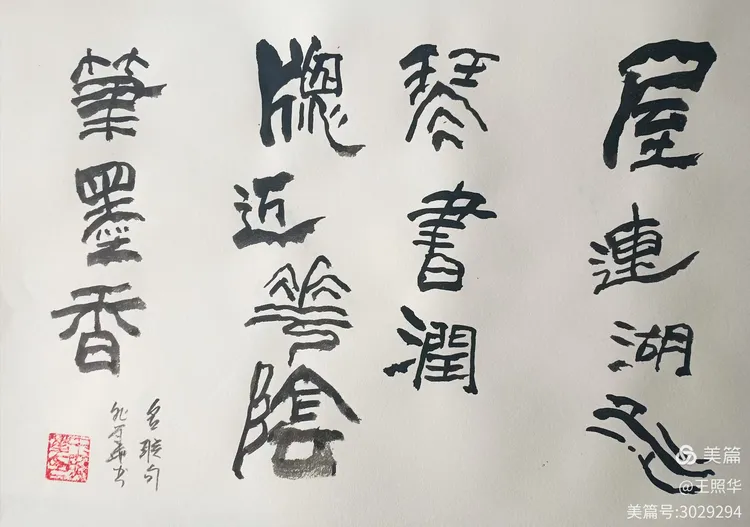 屋連湖光
琴書潤
牕近華陰
筆墨香
名聯句
美篇
@王照华
美篇号:3029294